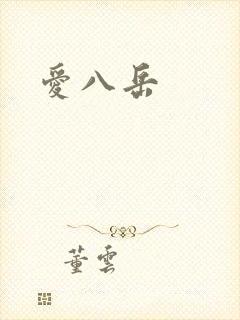 愛八岳
董雲